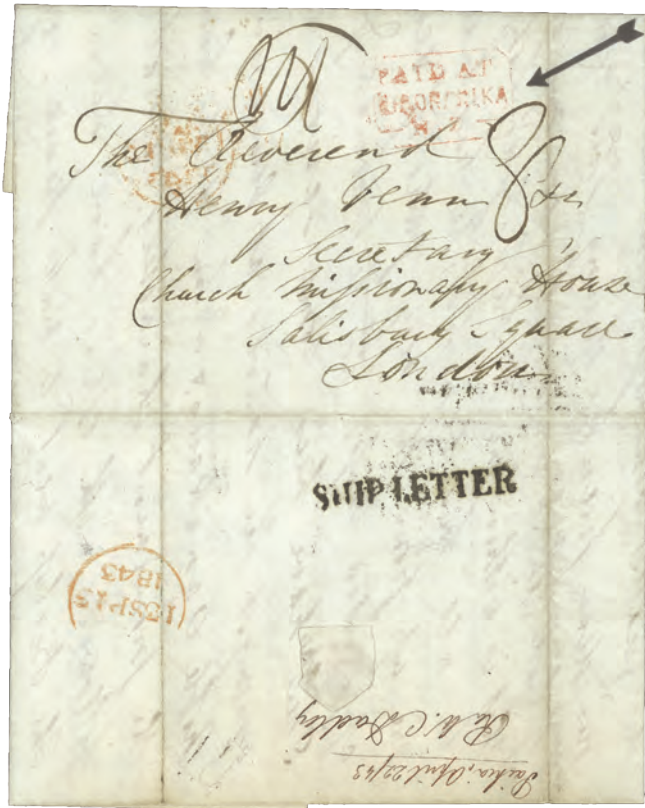 PAID AT
KORORARIKA
N Z
The Reverend
Henry Venn &c
Secretary
Church Missionary House
Salisbury Square
London
SHIP LETTER
13SP13
1843
Paihia, April 22/43
Revd. W. C. Dudley